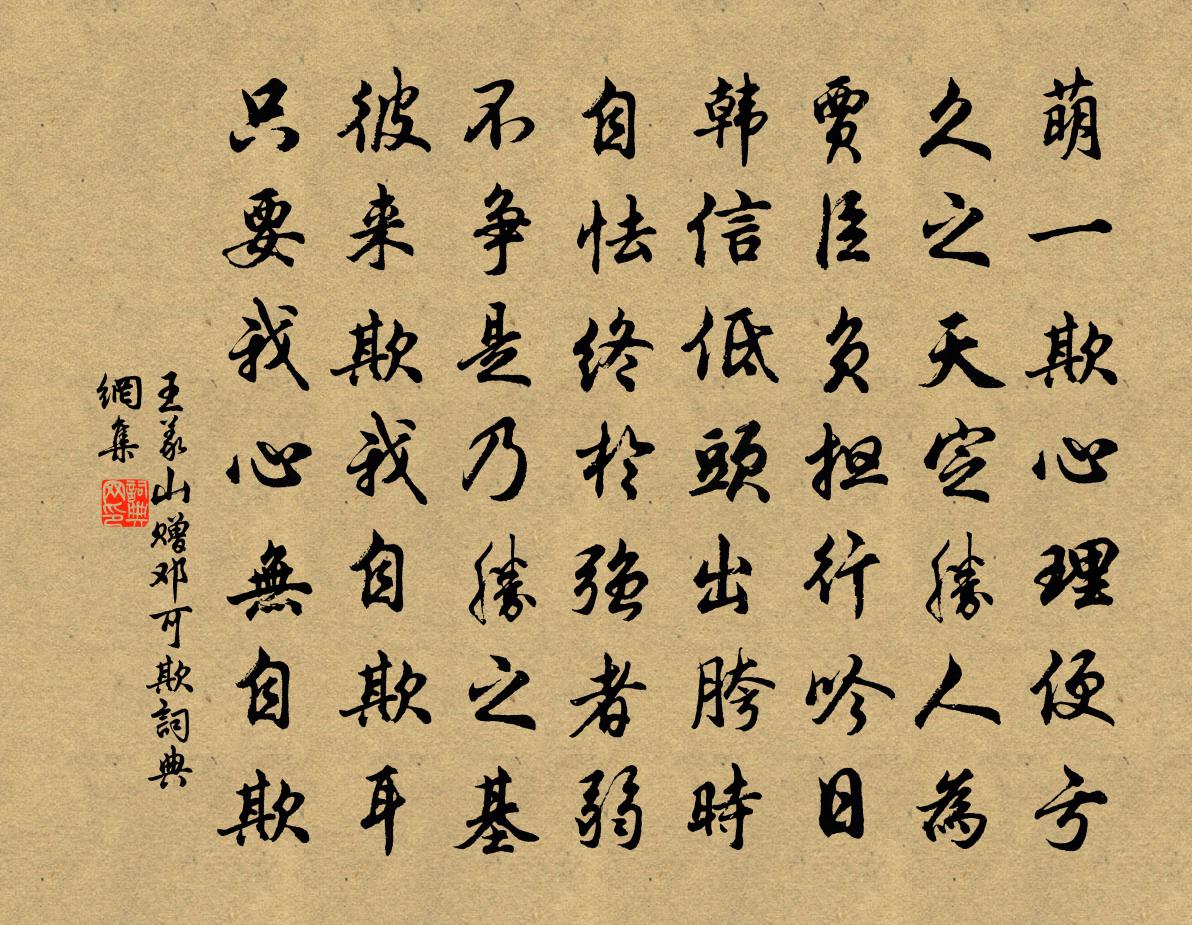 萌一欺心理便亏
久之天定勝人為
贾臣负担行吟日
韩信低頭出胯時
自怯终於强者弱
不争是乃勝之基
彼来欺我自欺耳
只要我心無自欺
王义山赠邓可欺詞典
網集
詞典
网印